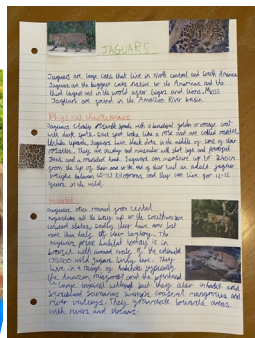 JAGUARS
Jaguars are large cats that live in North central and South America
Jaguars are the biggest cats native to the Americas and the
third largest cat in the world after tigers and lions. Most
Jaguars are found in the Amazon River basin.
Physical characteristics
Jaguars closely resemble leopards, with a
with dark spots. Each spot looks like a rose and are called rosettes
Unlike leopards, Jaguars have black dots in the middle of some of their
rosettes. They are and muscular with short legs and powerful
and a rounded head. Jaguars can measure up to
from the tip of their nose to the end of their tail an adult jaguar
weighs between kilograms, and they can live for 12-15
years in the wild.
Habitat
Jaguars once roamed from central
Argentina all the way up to the southwestern
united states, sadly they have now lost
more than half of their territory. The
Jaguars prime habitat today is in
brazil with around of the estimated
170,000 wild Jaguars living here. They
live in a range of habitats typically
the Amazon and the pantanal
Large tropical wetland but they also inhabit
Scrubland savannas mangroves and
river valleys. They gravitate towards areas
with rivers and streams.